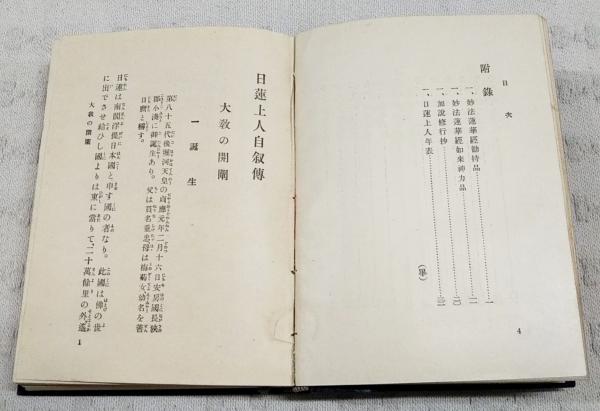 目次
附錄
一、妙法蓮華經勸持品……一
一、妙法蓮華經如來神力品……一〇
一、如說修行抄……
一、日蓮上人年表……
（畢）
4
日蓮上人自敍傳
大敎の開闡
一 誕生
第八十五代後堀河天皇の貞應元年二月十六日安房國長狹
郡小湊に御誕生あり。父は貫名重忠、母は梅菊女幼名を善
日麿と稱す。
日蓮は南閻浮提日本國と申す國の者なり。此國は佛の世
に出でさせ給ひし國よりは東に當りて、二十萬餘里の外、遙
大敎の開闡
1